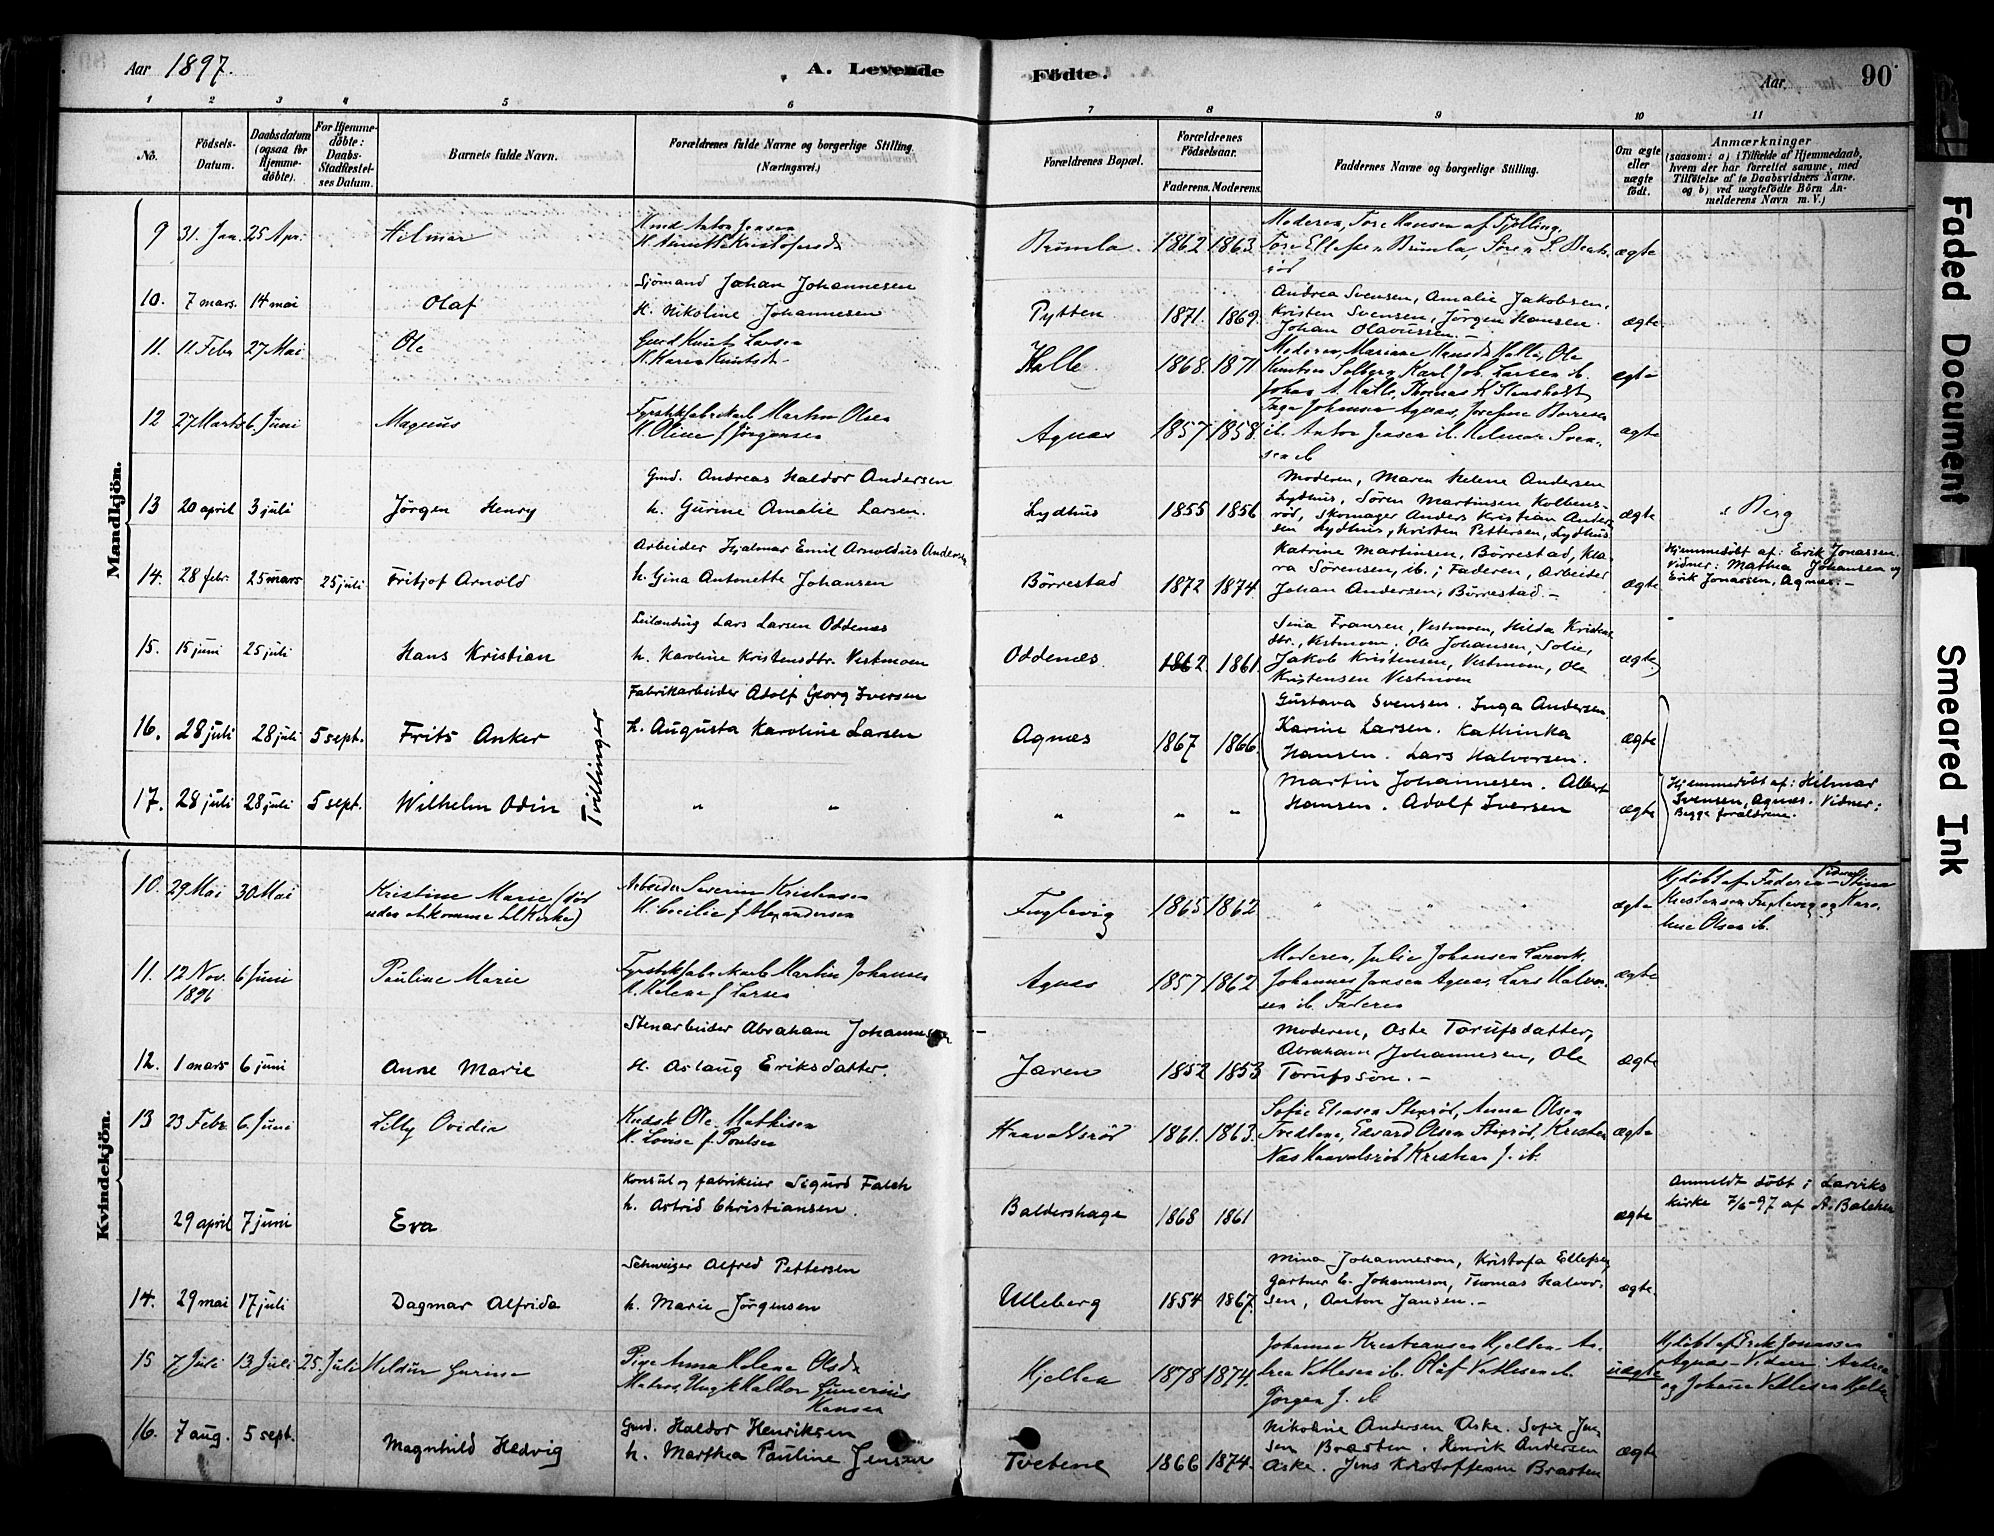 Aar 1897.
A. Levende Fødte.
Aar.
90
1 2 3 4 5 6 7 8 9 10 11
No.
Fødsels-Datum.
Daabsdatum (ogsaa for Hjemme-døbte).
For Hjemme-døbte: Daabs-Stadfæstel-ses Datum.
Barnets fulde Navn.
Forældrenes fulde Navne og borgerlige Stilling. (Næringsvei.)
Forældrenes Bopæl.
Forældrenes Fødselsaar.
Faderens. Moderens.
Faddernes Navne og borgerlige Stilling.
Om ægte eller uægte født.
Anmærkninger
(saasom: a) i Tilfælde af Hjemmedaab, hvem der har forrettet samme, med Tilføielse af to Daabsvidners Navne, og b) ved uægtefødte Børn An-melderens Navn m. V.)
Mandkjön.
9 31. Jan. 25 Apr. Hilmar
Anton Jensen
Brumla. 1862 1863.
Moderen, Tore Hansen af Tjølling
Tore Ellefsen Brumla, Søren S.
ægte
10. 7 mars. 14 mai Olaf
Sjömand Johan Johannesen
H. Nikoline Johannesen
Pytten 1871. 1869.
Andrea Svensen, Amalie Jakobsen,
Kristen Svensen, Jørgen Hansen.
Johan Olavussen.
ægte
11. 11 Febr 27 Mai Ole
Gmd Knut Larsen
H. Karen Knutsdr
Halle. 1868. 1871
Moderen, Mariane Hansdr Halle, Ole
Knutsen Solberg, Karl Joh. Larsen ib.
Johan A. Halle, Thomas K.
ægte
12 27 Marts 6. Juni Magnus
Fyrstikfabr.arb. Martin Olsen
H. Oline f Jørgensen
Agnæs 1857 1858.
Inga Johansen Agnæs, Josefine
ib. Anton Jensen ib. Hilmar Sven-
sen ib
ægte
13 20 april 3 juli Jørgen Henry
Gmd. Andreas Haldor Andersen
h. Gurine Amalie Larsen.
Lydhus 1855 1856
Moderen, Maren Helene Andersen
Lydhus, Søren Martinsen Kolbens-
rød, Skomager Anders Kristian Ander-
sen Lydhus, Kristen Pettersen, Lydhus
ægte
Berg
14. 28 febr. 25 mars 25 juli Fritjof Arnold
Arbeider Hjalmar Emil Arnoldus Andersen
h. Gina Antonette Johansen
Børrestad 1872 1874.
Katrine Martinsen, Børrestad, Kla-
ra Sørensen, ib.; Faderen, Arbeider
Johan Andersen, Børrestad.—
ægte
Hjemmedøbt af: Erik Jonassen.
Vidner: Mathea Johansen og
Erik Jonassen, Agnæs.—
15. 15 juni 25 juli Hans Kristian
Leilænding Lars Larsen Oddenæs
h. Karoline Kristensdtr. Vestmoen
Oddenæs. 1862 1861.
Sina Fransen, Vestmoen, Hilda Kristens-
dtr., Vestmoen, Ole Johansen, Solie,
Jakob Kristensen, Vestmoen, Ole
Kristensen Vestmoen
ægte
16. 28 juli 28 juli 5 sept. Frits Anker
Tvillinger
Fabrikarbeider Adolf Georg Iversen
h. Augusta Karoline Larsen
Agnæs 1867 1866.
Gustava Svensen. Inga Andersen.
Karine Larsen. Kathinka
Hansen. Lars Halvorsen.
ægte
17. 28 juli 28 juli 5 sept. Wilhelm Odin
" " " " "
Martin Johannesen. Albert
Hansen. Adolf Iversen
ægte
Hjemmedøbt af: Hilmar
Svensen, Agnæs. Vidner:
Begge forældrene.
Kvindekjön.
10. 29 Mai 30 Mai Kristine Marie (død
uden at komme til Kirke)
Arbeider Severin Kristensen
H. Cecilie f Alexandersen
Fuglevig 1865 1862
" " "
ægte
Hjdøbt af Faderen - Vidner Stina
Kristensen Fuglevig og Karo-
line Olsen ib.
11. 12 Nov. 1896 6 Juni Pauline Marie
Fyrstikfabr.arb. Martin Johansen
H. Helene f Larsen
Agnæs 1857 1862
Moderen, Julie Johansen Larvik,
Johannes Jansen Agnæs, Lars Halvor-
sen ib. Faderen
ægte
12. 1 mars 6 juni Anne Marie
Stenarbeider Abraham Johannesen
H. Aslaug Eriksdatter.
Jæren 1852 1853
Moderen, Oste Torufsdatter,
Abraham Johannesen, Ole
Torufssøn.—
ægte
13 23 Febr. 6. Juni Lilly Ovidia
Ole Mathisen
H. Lovise f. Poulsen
Haavaldsrød 1861. 1863.
Sofie Eliasen Steprød, Anna Olsen
Tvedtene, Edvard Olsen Steprød, Kristen
Næs Haavalsrød Kristian J. ib.
ægte
29 april 7 juni Eva
Konsul og fabrikeier Sigurd Falch
h. Astrid Christiansen.
Baldershage 1868 1861
ægte
Anmeldt døbt i Larviks
kirke 7/6-97 af A. Balchen
14. 29 mai 17 juli Dagmar Alfrida
Schweizer Alfred Pettersen
h. Marie Jørgensen
Ulleberg 1854 1867.
Mina Johannesen, Kristofa Ellefsen,
Gartner E. Johannesen, Thomas Halvor-
sen, Anton Jansen.—
ægte.
15 7 Juli 13 Juli 25. Juli Hildur Gurine
Pige Anna Helene Olsdr
Matros, Ungk Haldor Gunerius
Hansen
Hjellen 1878 1874.
Johanne Kristiansen Hjellen. An-
drea Vetlesen ib. Olaf Vetlesen ib.
Jørgen J. ib
uægte
Hjdöbt af Erik Jonassen
Agnæs - Vidner: Andrea
og Johanne Vetlesen Hjellen
16. 7 aug. 5 sept. Magnhild Hedvig
Gmd. Haldor Henriksen
h. Marthea Pauline Jensen
Tvetene 1866 1874.
Nikoline Andersen Aske. Sofie Jen-
sen Bræsten. Henrik Andersen
Aske. Jens Kristoffersen Bræsten
ægte
Faded Document
Smeared Ink